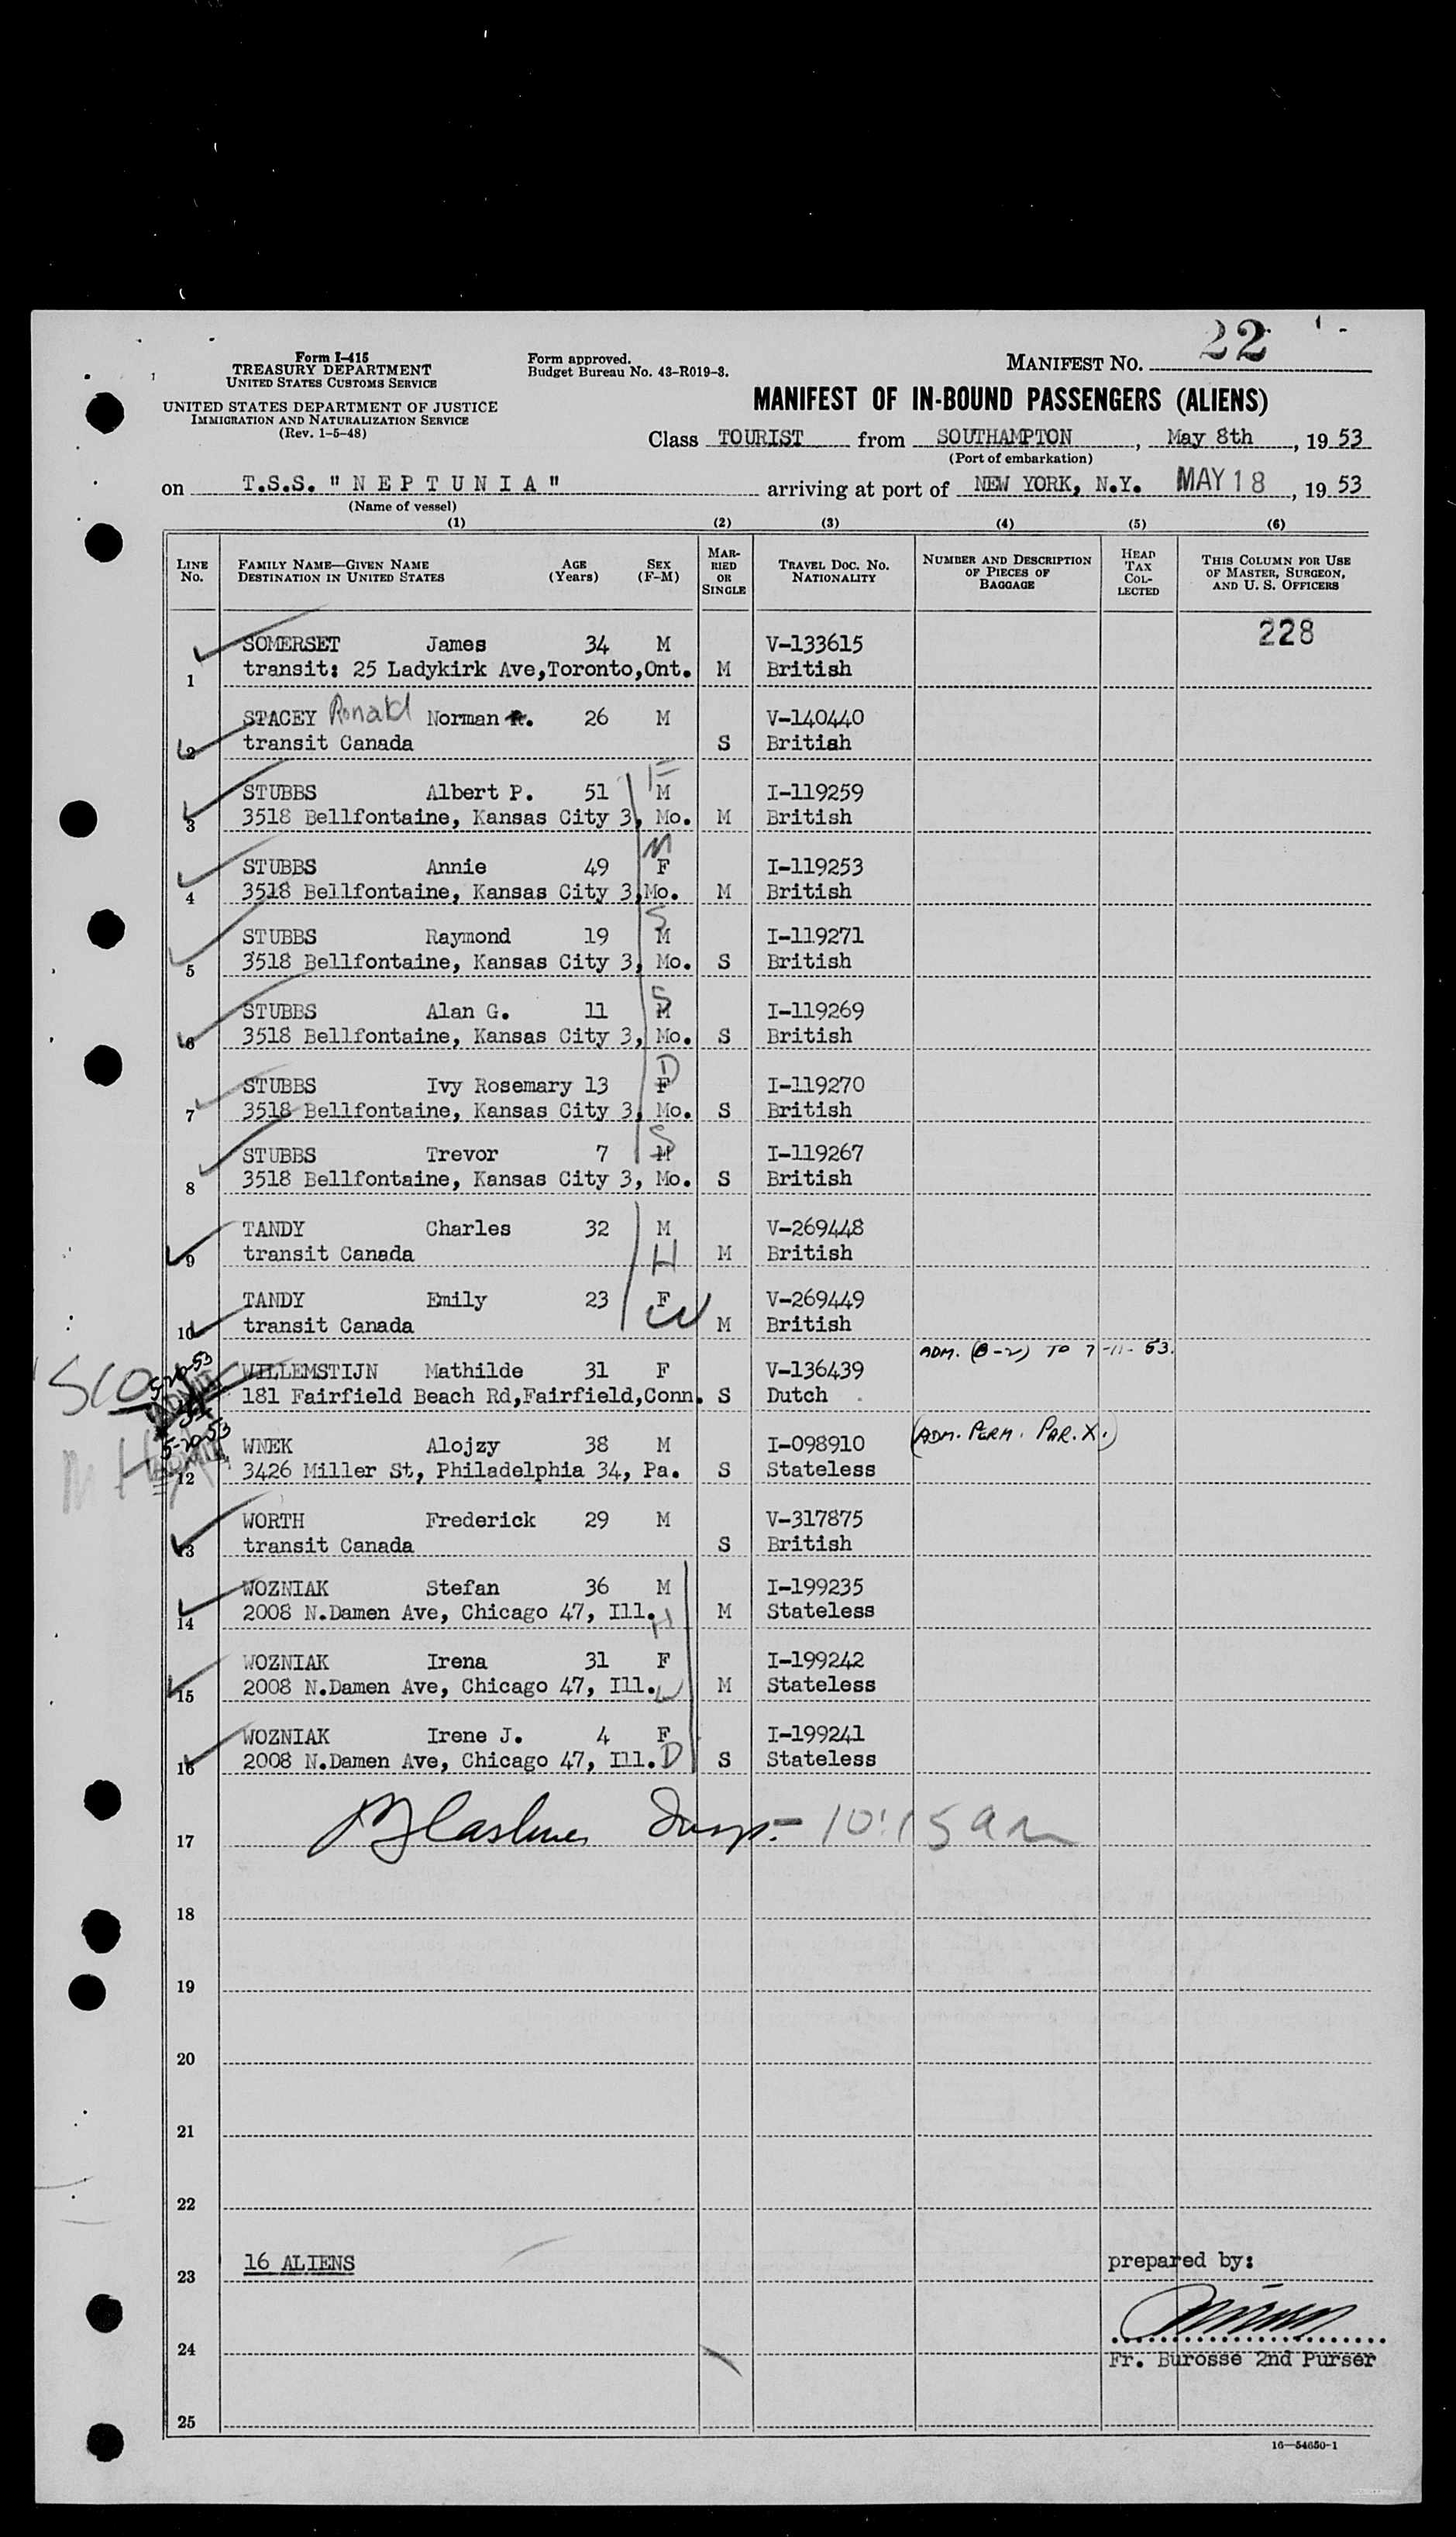 22
Form I-415
TREASURY DEPARTMENT
UNITED STATES CUSTOMS SERVICE
UNITED STATES DEPARTMENT OF JUSTICE
IMMIGRATION AND NATURALIZATION SERVICE
(Rev. 1-5-48)
Form approved.
Budget Bureau No. 43-R019-3.
MANIFEST NO.
MANIFEST OF IN-BOUND PASSENGERS (ALIENS)
Class TOURIST from SOUTHAMPTON, May 8th, 19 53
(Port of embarkation)
on T.S.S. "NEPTUNIA" arriving at port of NEW YORK, N.Y. MAY 18, 19 53
(Name of vessel)
(1) (2) (3) (4) (5) (6)
LINE No. FAMILY NAME—GIVEN NAME DESTINATION IN UNITED STATES AGE (Years) SEX (F-M) MARRIED OR SINGLE TRAVEL DOC. NO. NATIONALITY NUMBER AND DESCRIPTION OF PIECES OF BAGGAGE HEAD TAX COLLECTED THIS COLUMN FOR USE OF MASTER, SURGEON, AND U. S. OFFICERS
228
SOMERSET James 34 M V-133615
1 transit: 25 Ladykirk Ave,Toronto,Ont. M British
STACEY Ronald Norman R. 26 M V-140440
2 transit Canada S British
STUBBS Albert P. 51 M F I-119259
3 3518 Bellfontaine, Kansas City 3, Mo. M British
STUBBS Annie 49 F M I-119253
4 3518 Bellfontaine, Kansas City 3,Mo. M British
STUBBS Raymond 19 M S I-119271
5 3518 Bellfontaine, Kansas City 3, Mo. S British
STUBBS Alan G. 11 M S I-119269
6 3518 Bellfontaine, Kansas City 3, Mo. S British
STUBBS Ivy Rosemary 13 F D I-119270
7 3518 Bellfontaine, Kansas City 3, Mo. S British
STUBBS Trevor 7 M S I-119267
8 3518 Bellfontaine, Kansas City 3, Mo. S British
TANDY Charles 32 M V-269448
9 transit Canada H M British
TANDY Emily 23 F V-269449
10 transit Canada W M British
ADM. (B-2) TO 7-11-53.
5-20-53
WILLEMSTIJN Mathilde 31 F V-136439
181 Fairfield Beach Rd,Fairfield,Conn. S Dutch
5-20-53
(ADM. PERM. PAR. X.)
WNEK Alojzy 38 M I-098910
12 3426 Miller St, Philadelphia 34, Pa. S Stateless
WORTH Frederick 29 M V-317875
13 transit Canada S British
WOZNIAK Stefan 36 M I-199235
14 2008 N.Damen Ave, Chicago 47, Ill. H M Stateless
WOZNIAK Irena 31 F I-199242
15 2008 N.Damen Ave, Chicago 47, Ill. W M Stateless
WOZNIAK Irene J. 4 F I-199241
16 2008 N.Damen Ave, Chicago 47, Ill. D S Stateless
17 Insp. - 10:15 am
18
19
20
21
22
23 16 ALIENS prepared by:
24
Fr. Burosse 2nd Purser
25
16—54650-1